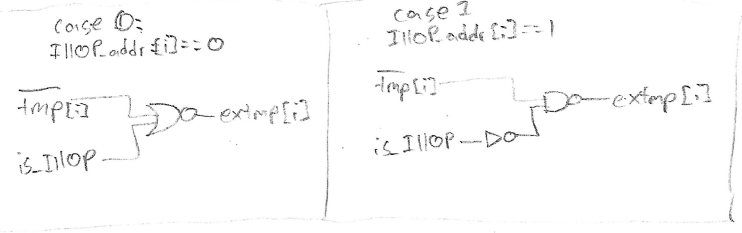 case 0:
IllOP_addr[i]==0
tmp[i]
is_IllOP
extmp[i]
case 1
IllOP_addr[i]==1
tmp[i]
is_IllOP
extmp[i]